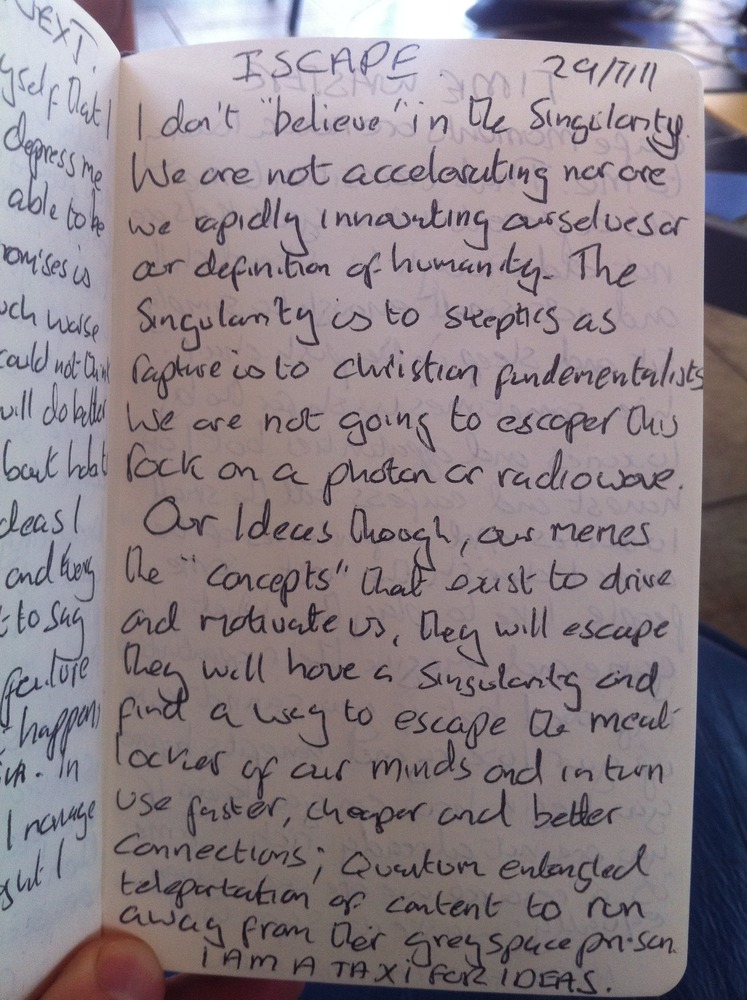 NEXT.
yself that I
depress me
able to be
romises is
uch worse
could not think
will do better
bout
deas I
and they
t to say
feature
happens
In
I manage
ght I
ISCAPE. 29/7/11
I don't "believe" in the Singularity.
We are not accelerating nor are
we rapidly innovating ourselves or
our definition of humanity. The
Singularity is to skeptics as
rapture is to christian fundementalists
We are not going to escaper this
rock on a photon or radiowave.
Our Ideas though, our memes
the "concepts" that exist to drive
and motivate us, they will escape
they will have a singularity and
find a way to escape the meat
locker of our minds and in turn
use faster, cheaper and better
connections; Quantum entangled
teleportation of content to run
away from their greyspace prison.
I AM A TAXI FOR IDEAS.